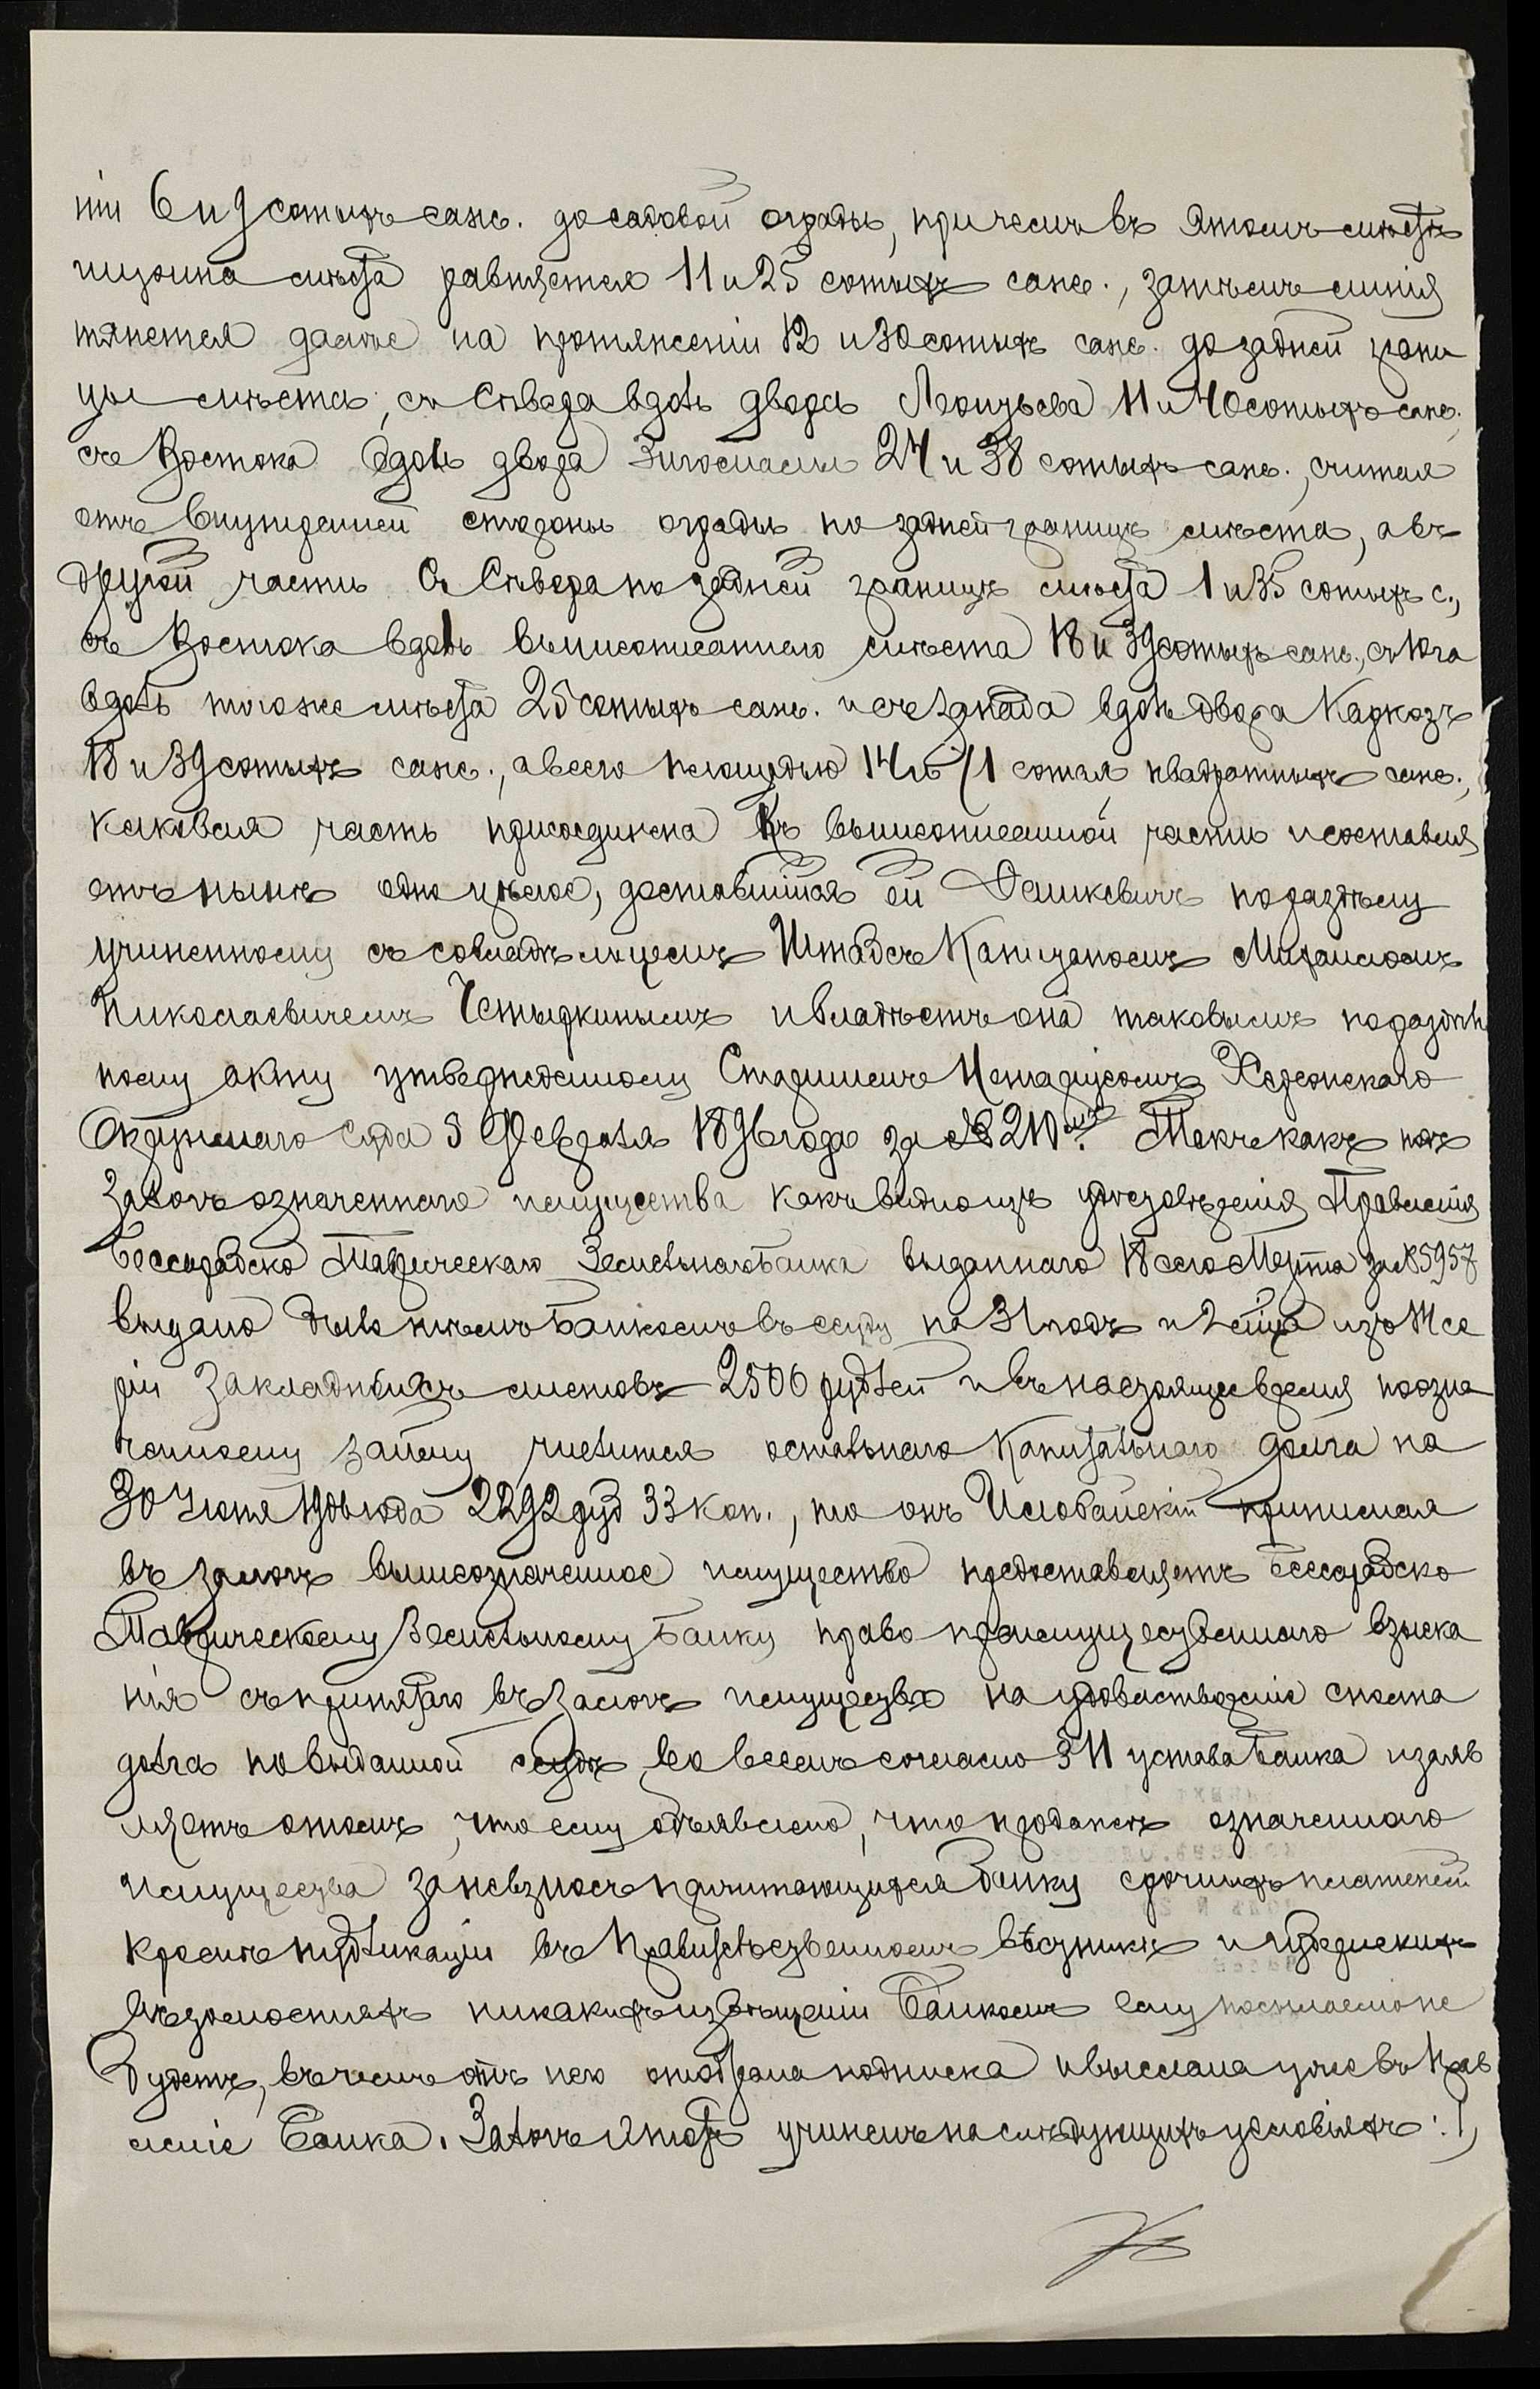 ніи 6 и 9 сотыхъ саж. до садовой ограды, причемъ въ этомъ мѣстѣ
ширина мѣста равняется 11 и 25 сотыхъ саж., затѣмъ линія
тянется далѣе на протяженіи 12 и 30 сотыхъ саж. до задней грани
цы мѣста, съ Сѣвера вдоль двора Леонтьева 11 и 40 сотыхъ саж.,
съ Востока вдоль двора 24 и 38 сотыхъ саж., считая
отъ внутренней стороны ограды по задней границѣ мѣста, а въ
другой части Съ Сѣвера по задней границѣ мѣста 1 и 35 сотыхъ с.,
съ Востока вдоль вышеописаннаго мѣста 18 и 39 сотыхъ саж., съ Юга
вдоль того же мѣста 25 сотыхъ саж. и съ Запада вдоль двора Каркозъ
18 и 39 сотыхъ саж., а всего площадью 14 и 71 сотая квадратныхъ саж.,
каковая часть присоединена къ вышеописанной части и составля
етъ нынѣ одно цѣлое, доставшійся ей Дашкевичъ по раздѣлу
учиненному съ совладѣльцемъ Штабсъ Капитаномъ Михаиломъ
Николаевичемъ Четыркинымъ и владѣетъ она таковымъ по раздѣль
ному акту утвержденному Старшимъ Нотаріусомъ Херсонскаго
Окружнаго Суда 5 Февраля 1896 года за № 210мъ. Такъ какъ подъ
залогъ означеннаго имущества какъ видно изъ удостовѣренія Правленія
Бессарабско Таврическаго Земельнаго Банка выданнаго 18 сего Марта за № 5957
выдано Банкомъ въ ссуду на 31 годъ и 2 мѣс. изъ
ріи закладныхъ листовъ 2500 рублей и въ настоящее время по озна
ченному займу числится остальнаго капитальнаго долга на
30 Іюня 1906 года 2292 руб 33 коп., то онъ принимая
въ залогъ вышеозначенное имущество предоставляетъ Бессарабско
Таврическому Земельному Банку право преимущественнаго взыска
нія съ принятаго въ залогъ имущества на удовлетвореніе сполна
долга по выданной ссудѣ, во всемъ согласно § 11 устава Банка и заяв
ляетъ о томъ, что ему объявлено, что о продажѣ означеннаго
имущества за невзносъ причитающихся Банку срочныхъ платежей
кромѣ публикаціи въ Правительственномъ вѣстникѣ и Губернскихъ
вѣдомостяхъ никакихъ извѣщеній Банкомъ ему посылаемо не
будетъ, въ чемъ отъ него отобрана подписка и выслана уже въ Прав
леніе Банка. Залогъ этотъ учиненъ на слѣдующихъ условіяхъ: 1,